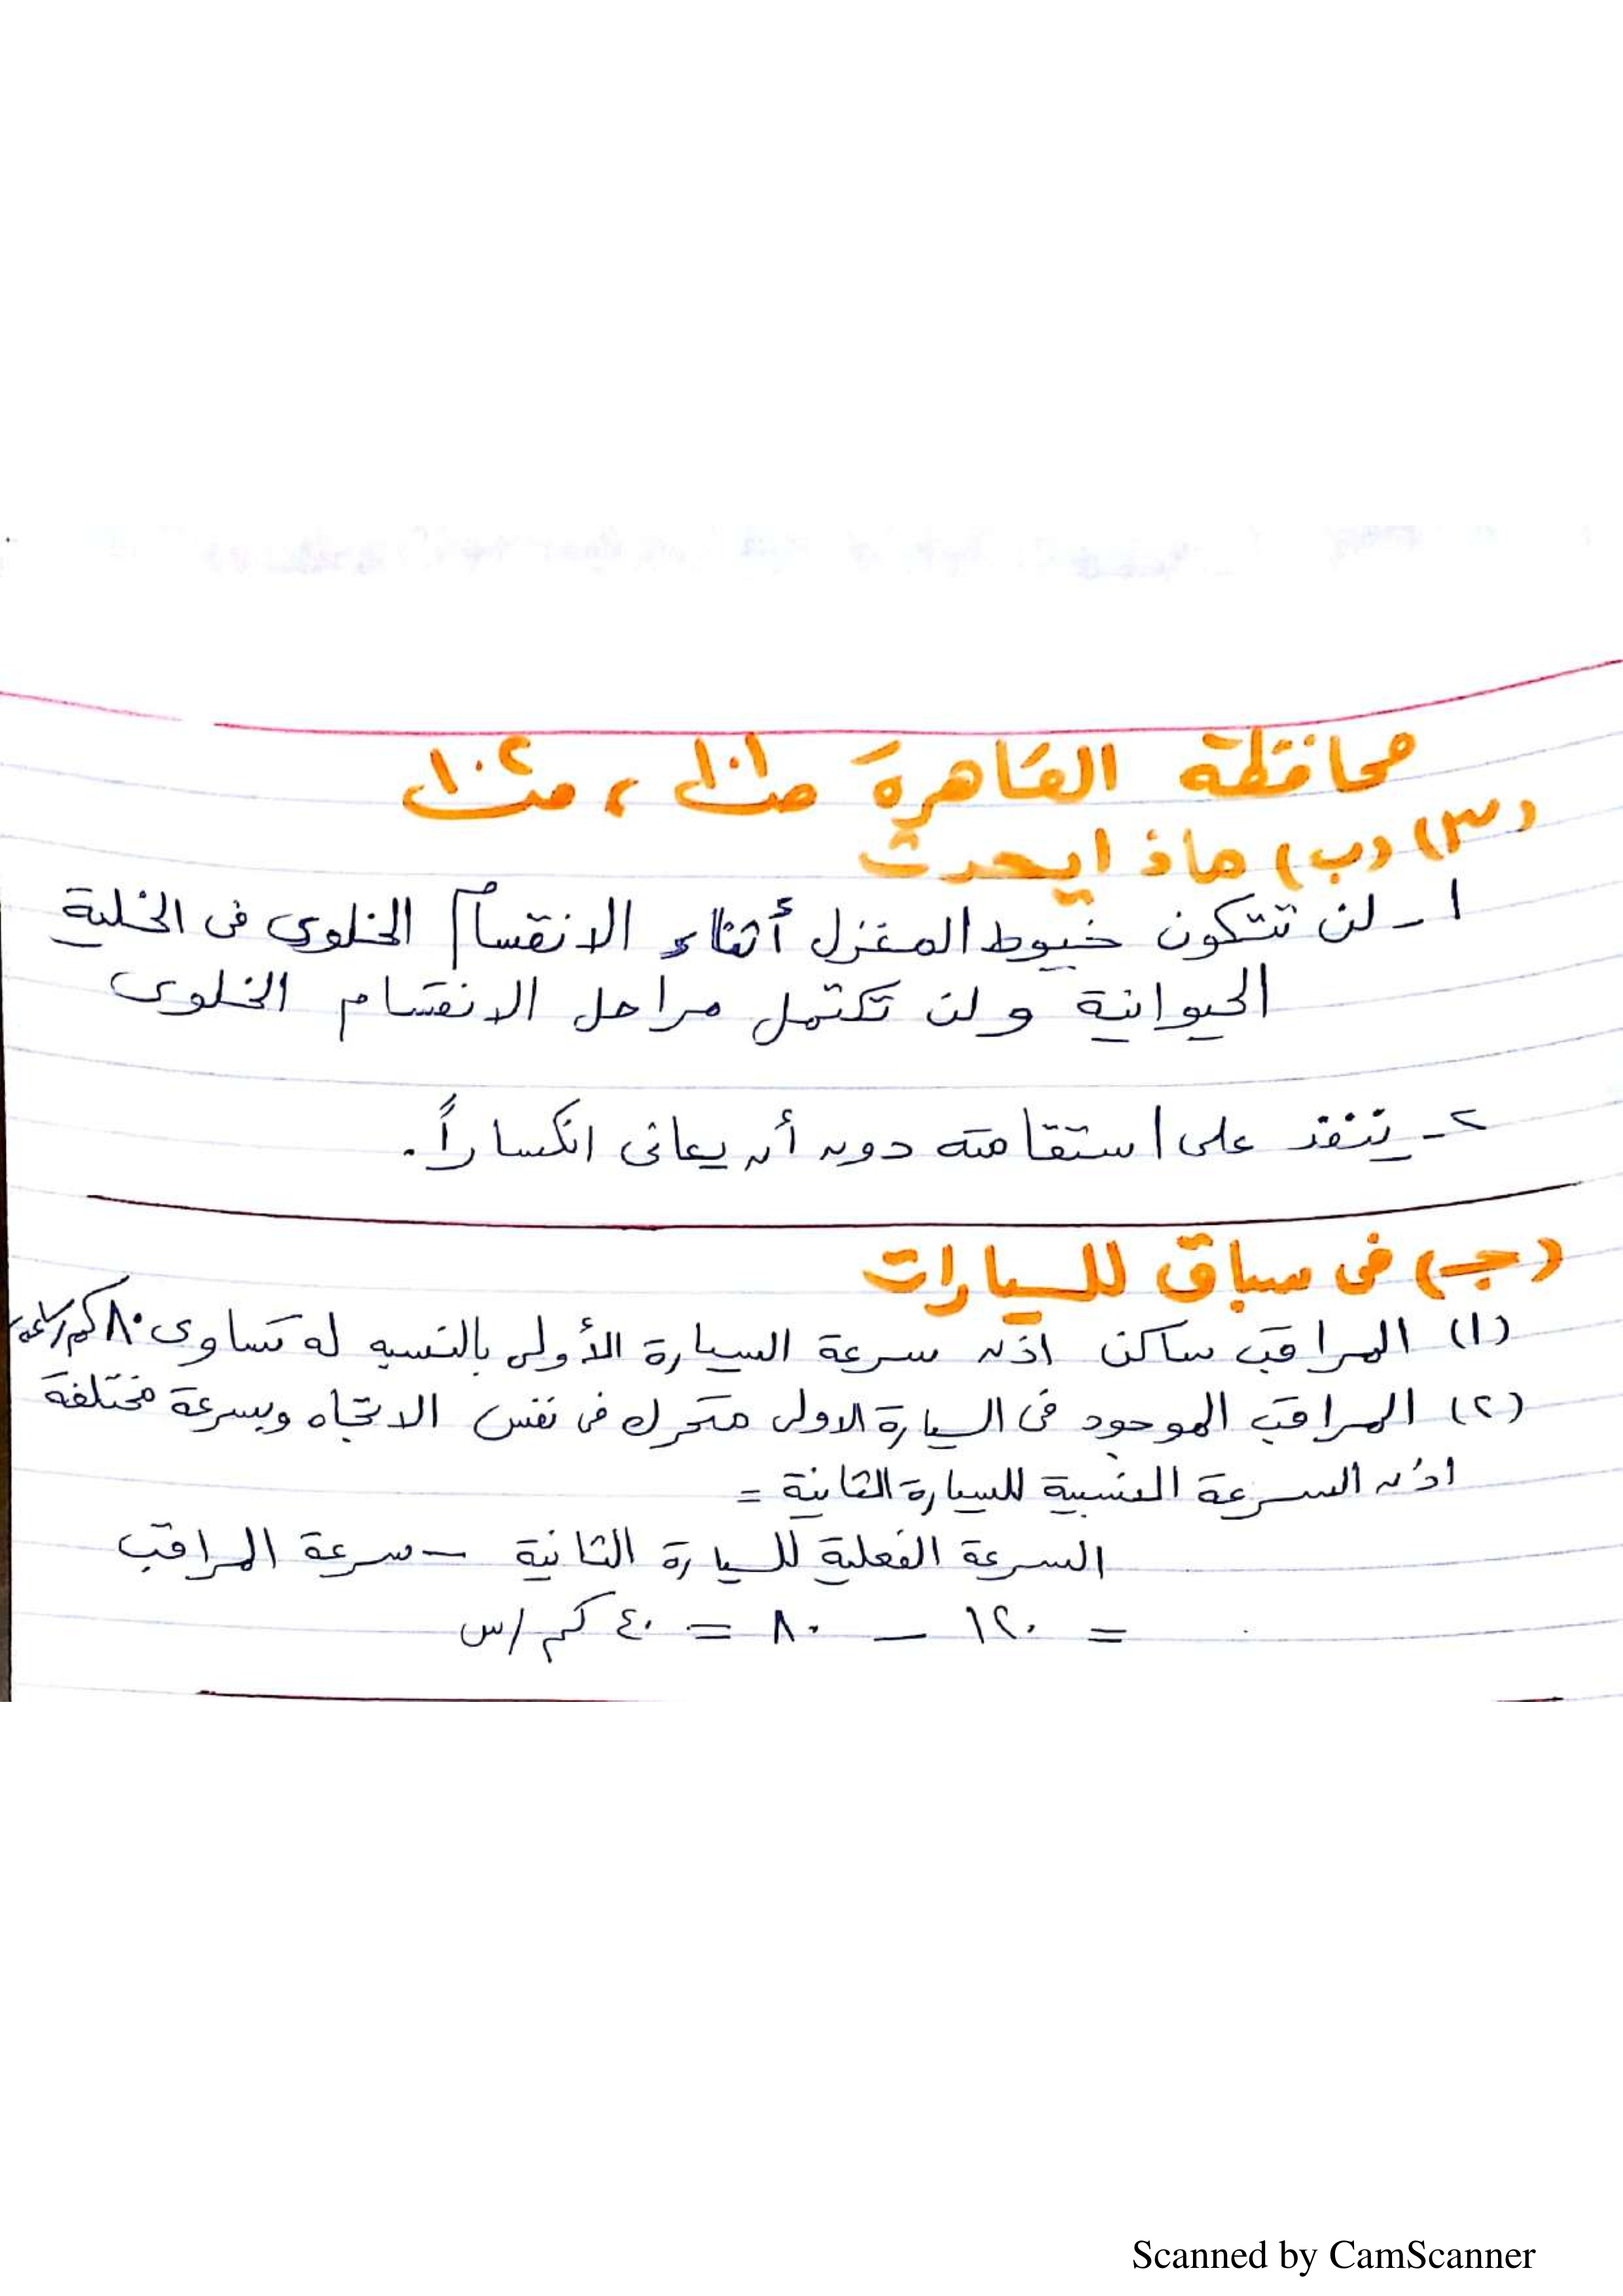 محافظة القاهرة ص١٠١ ، ص١٠٢
(٣) (ب) ماذا يحدث
١- لن تتكون خيوط المغزل أثناء الانقسام الخلوى فى الخلية
الحيوانية ولن تكتمل مراحل الانقسام الخلوى
٢- ينفذ على استقامته دون أن يعانى انكساراً.
(جـ) فى سباق للسيارات
(١) المراقب ساكن اذن سرعة السيارة الأولى بالنسبه له تساوى ٨٠ كم/ساعة
(٢) المراقب الموجود فى السيارة الاولى متحرك فى نفس الاتجاه وبسرعة مختلفة
اذن السرعة النسبية للسيارة الثانية =
السرعة الفعلية للسيارة الثانية – سرعة المراقب
= ١٢٠ – ٨٠ = ٤٠ كم/س
Scanned by CamScanner